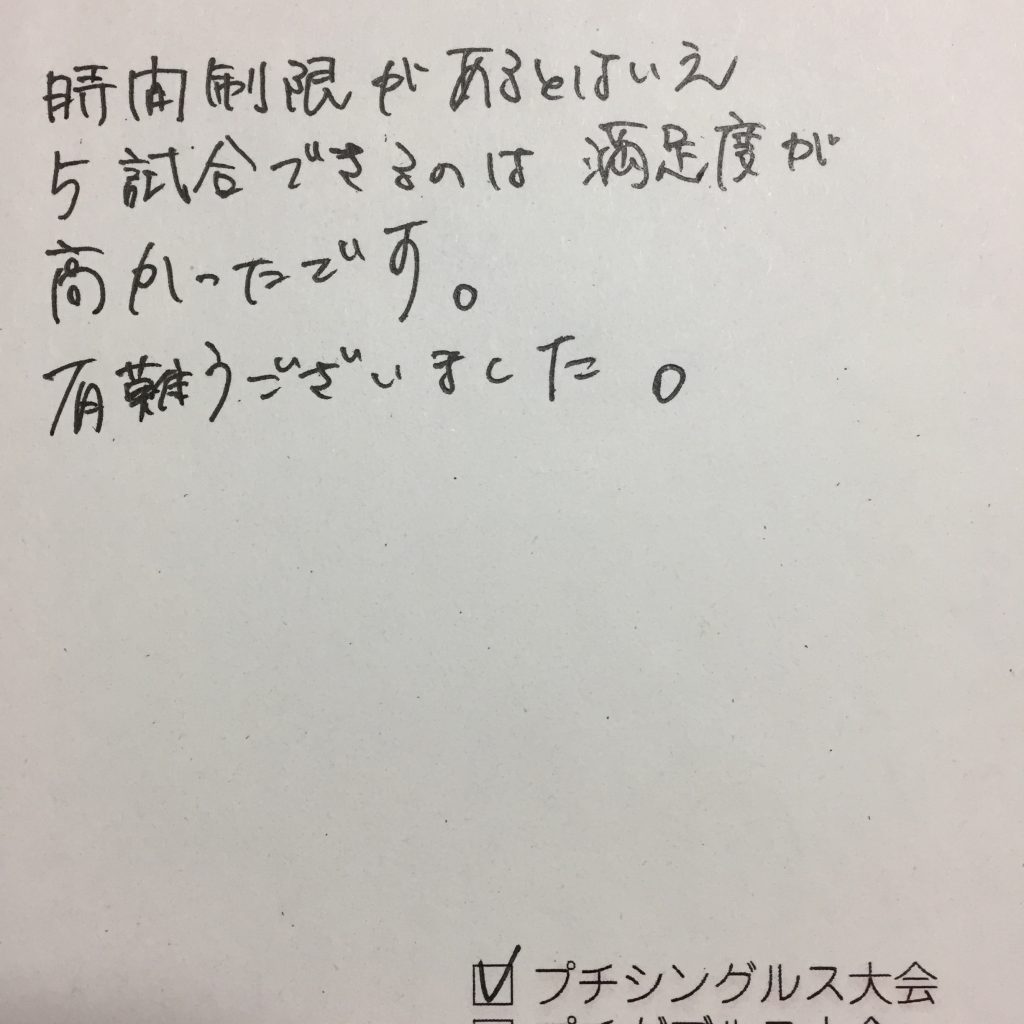 時間制限があるとはいえ
5試合できるのは満足度が
高かったです。
有難うございました。
プチシングルス大会